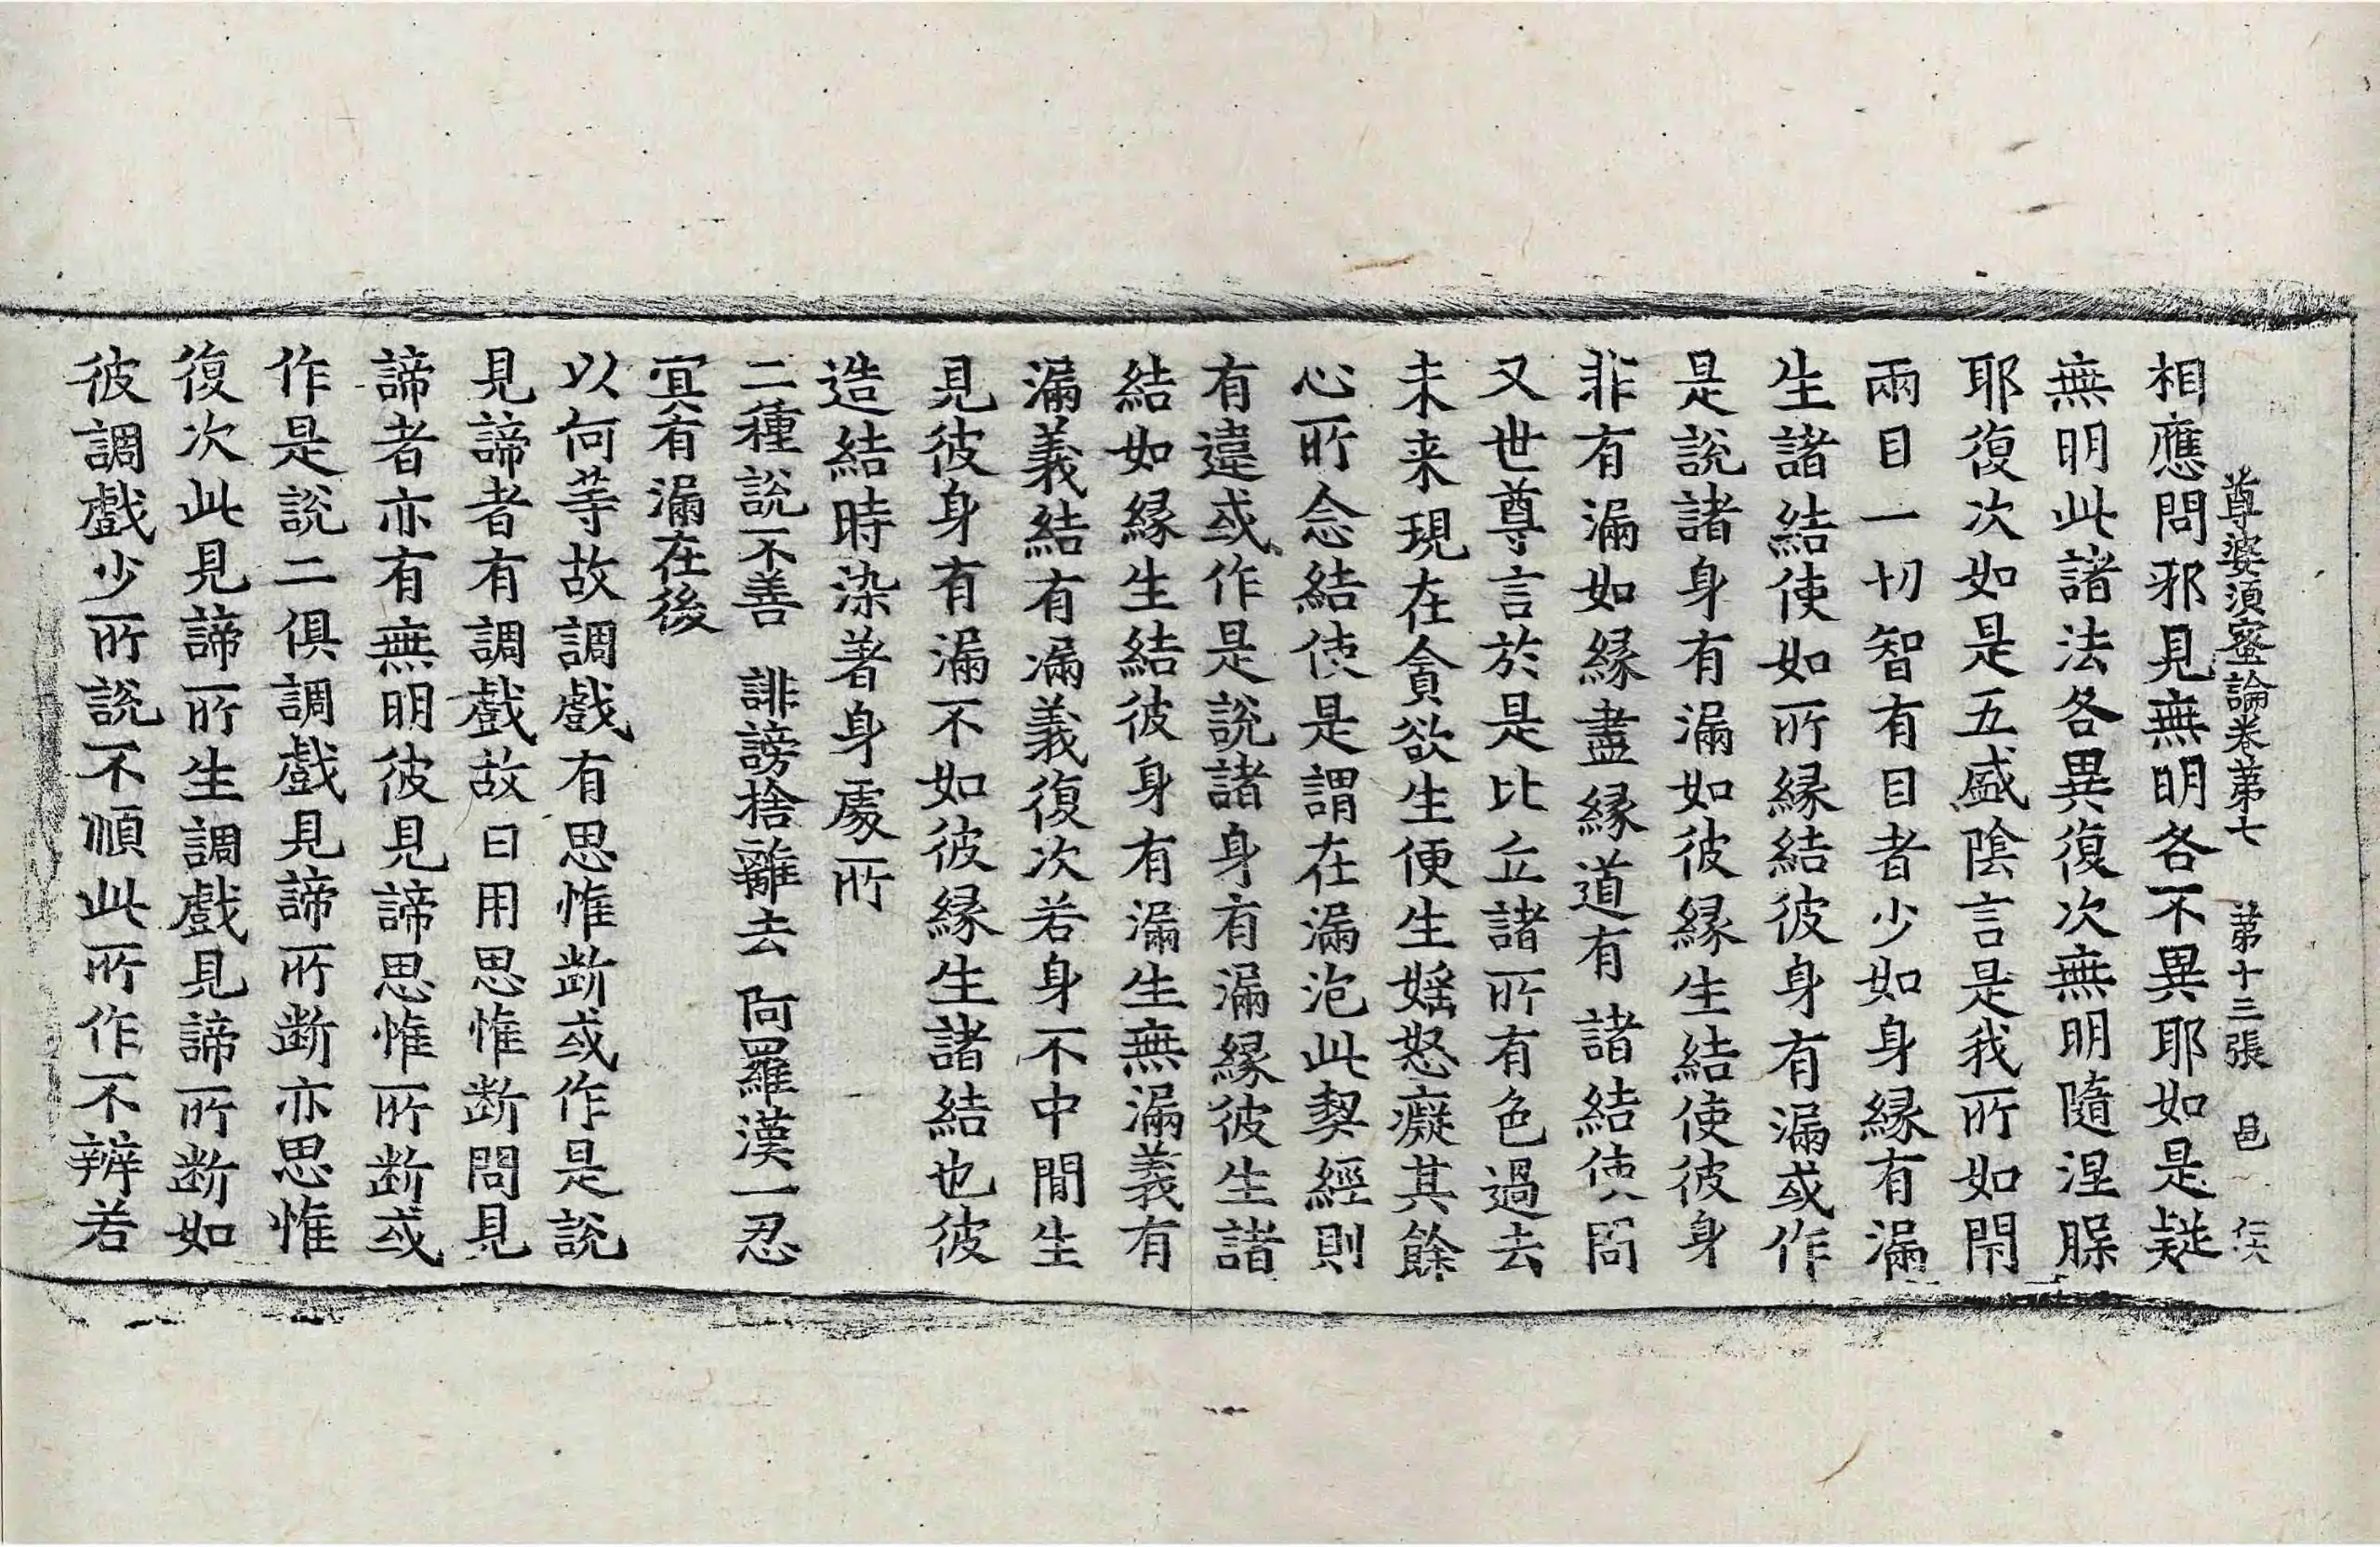 尊婆須蜜論卷第七 第十三張 邑
相應問邪見無明各不異耶如是疑
無明此諸法各異復次無明隨涅脲
耶復次如是五盛陰言是我所如閇
兩目一切智有目者少如身緣有漏
生諸結使如所緣結彼身有漏或作
是說諸身有漏如彼緣生結使彼身
非有漏如緣盡緣道有諸結使問
又世尊言於是比丘諸所有色過去
未来現在貪欲生便生婬怒癡其餘
心所念結使是謂在漏泡此契經則
有違或作是說諸身有漏緣彼生諸
結如緣生結彼身有漏生無漏義有
漏義結有漏義復次若身不中間生
見彼身有漏不如彼緣生諸結也彼
造結時染著身處所
二種說不善 誹謗捨離去 阿羅漢一忍
宜有漏在後
以何等故調戲有思惟斷或作是說
見諦者有調戲故曰用思惟斷問見
諦者亦有無明彼見諦思惟所斷或
作是說二俱調戲見諦所斷亦思惟
復次此見諦所生調戲見諦所斷如
彼調戲少所說不順此所作不辨若